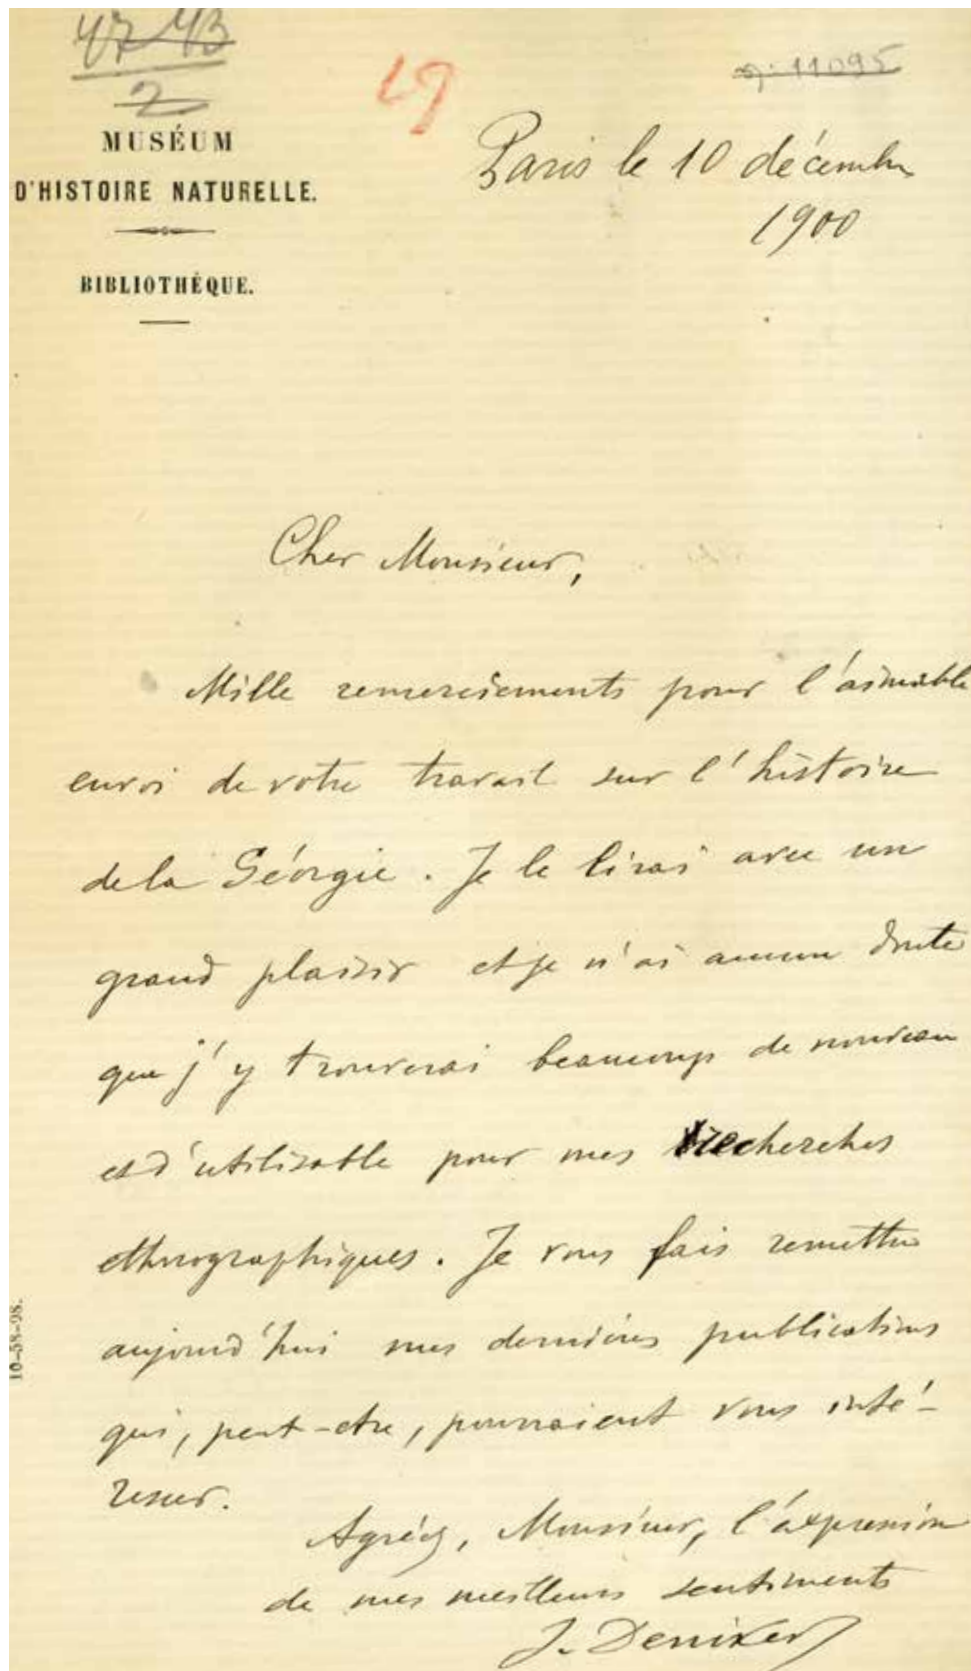 47-43
2
19
n: 11095
MUSÉUM
D'HISTOIRE NATURELLE.
BIBLIOTHÈQUE.
Paris le 10 décembre
1900
Cher Monsieur,
Mille remerciements pour l'aimable
envoi de votre travail sur l'histoire
de la Géorgie. Je le lirai avec un
grand plaisir et je n'ai aucun doute
que j'y trouverai beaucoup de nouveau
et d'utilisable pour mes recherches
ethnographiques. Je vous fais remettre
aujourd'hui mes dernières publications
qui, peut-etre, pourraient vous inté-
resser.
Agréez, Monsieur, l'expression
de mes meilleurs sentiments
J. Deniker
10-58-98.